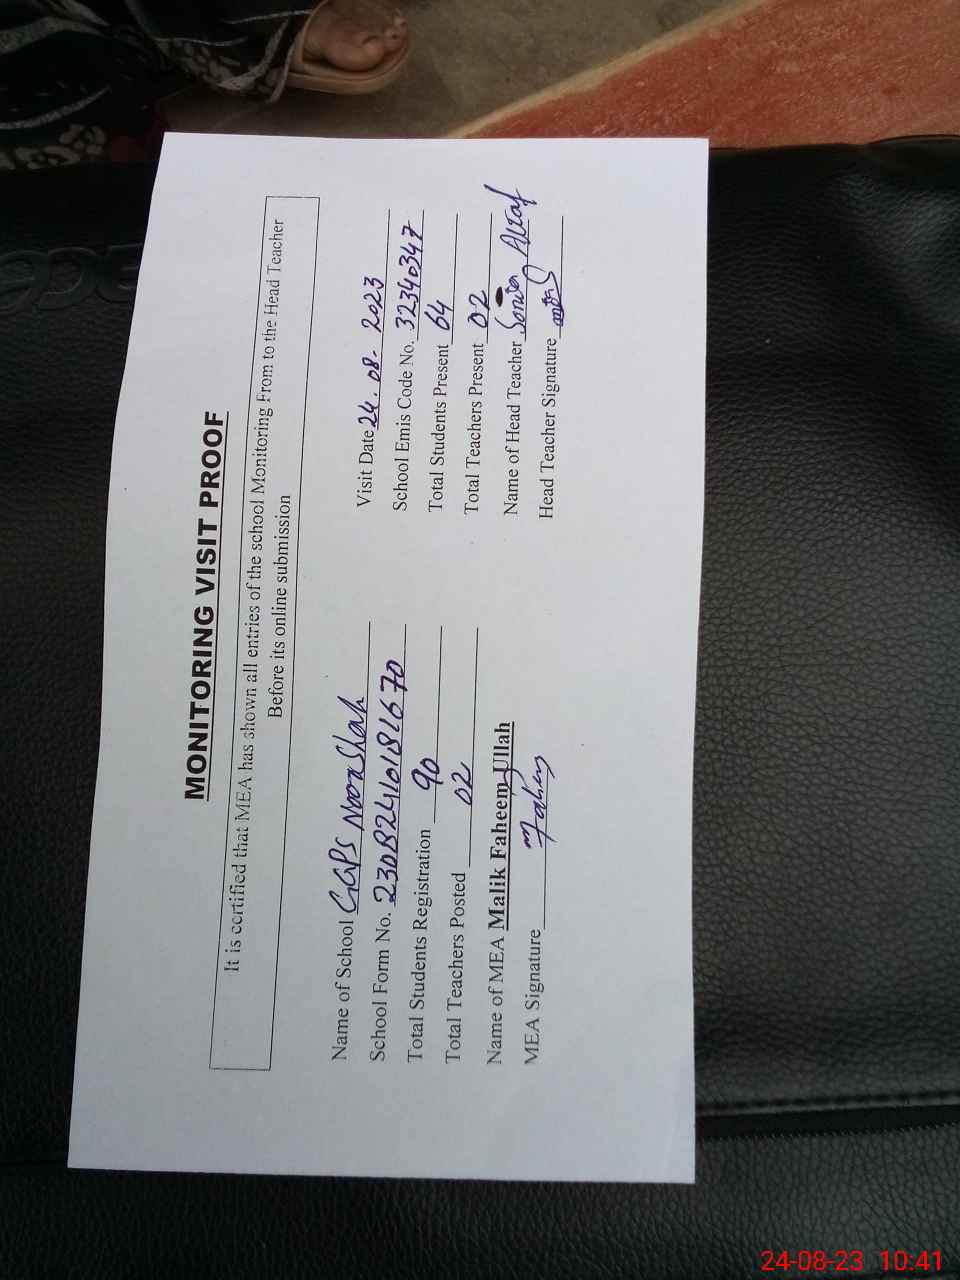 MONITORING VISIT PROOF
It is certified that MEA has shown all entries of the school Monitoring From to the Head Teacher
Before its online submission
Name of School GGPS Noor Shah
Visit Date 24.08.2023
School Form No. 23082410181670
School Emis Code No. 32340347
Total Students Registration 90
Total Students Present 64
Total Teachers Posted 02
Total Teachers Present 02
Name of MEA Malik Faheem Ullah
Name of Head Teacher Altaf
MEA Signature Fahem
Head Teacher Signature
24-08-23 10:41